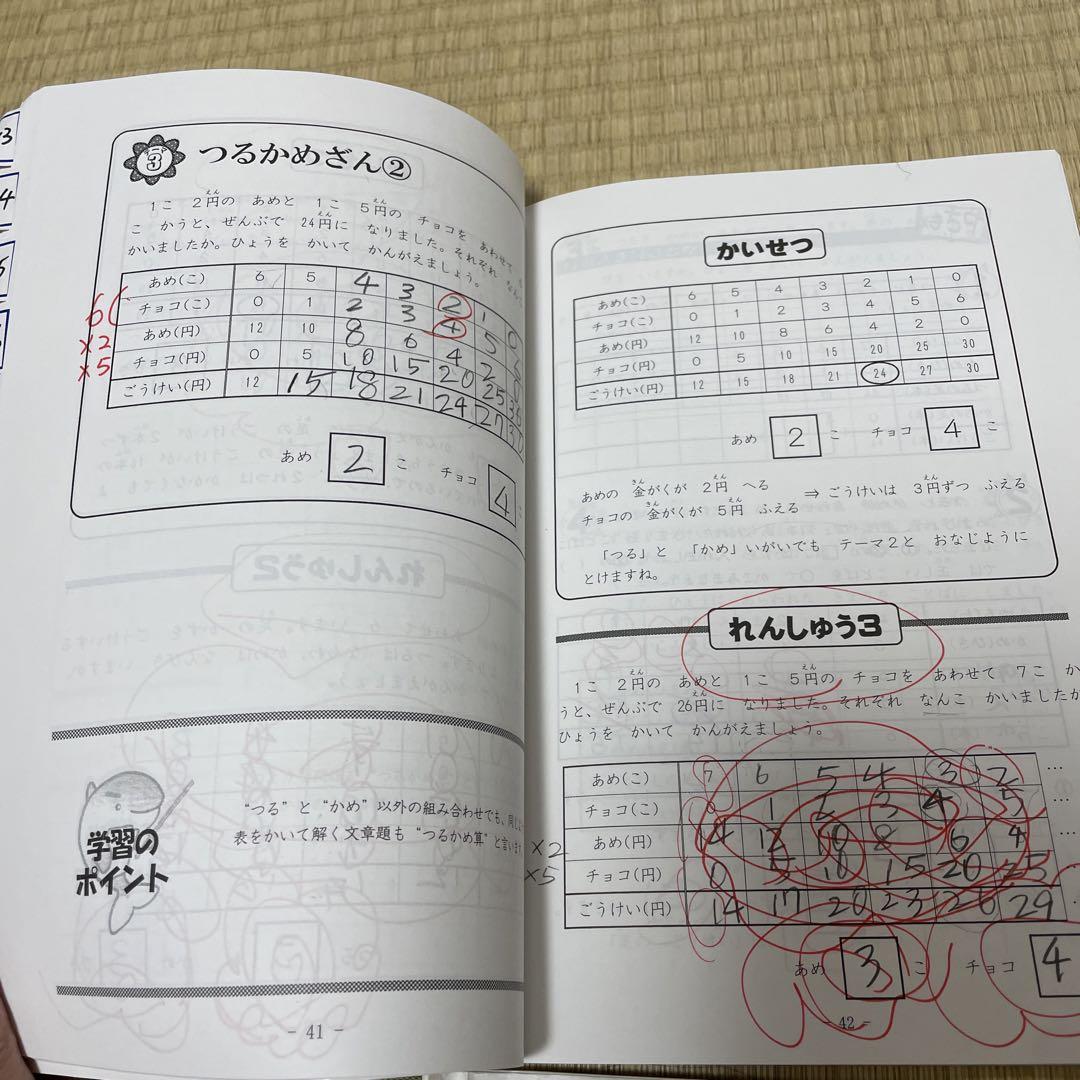 3
つるかめざん②
1こ 2円の あめと 1こ 5円の チョコを あわせて
こ かうと、ぜんぶで 24円に なりました。それぞれ なん
かいましたか。ひょうを かいて かんがえましょう。
あめ(こ) 6 5 4 3 2 1 0
チョコ(こ) 0 1 2 3 4 5
あめ(円) 12 10 8 6 4 2
チョコ(円) 0 5 10 15 20 25
ごうけい(円) 12 15 18 21 24 27
×2
×5
あめ 2 こ チョコ 4 こ
学習の
ポイント
“つる”と“かめ”以外の組み合わせでも、同じ
表をかいて解く文章題も“つるかめ算”と言います
- 41 -
かいせつ
あめ(こ) 6 5 4 3 2 1 0
チョコ(こ) 0 1 2 3 4 5 6
あめ(円) 12 10 8 6 4 2 0
チョコ(円) 0 5 10 15 20 25 30
ごうけい(円) 12 15 18 21 24 27 30
あめ 2 こ チョコ 4 こ
あめの 金がくが 2円 へる ⇒ ごうけいは 3円ずつ ふえる
チョコの 金がくが 5円 ふえる
「つる」と 「かめ」いがいでも テーマ2と おなじように
とけますね。
れんしゅう3
1こ 2円の あめと 1こ 5円の チョコを あわせて 7こ か
うと、ぜんぶで 26円に なりました。それぞれ なんこ かいましたか
ひょうを かいて かんがえましょう。
あめ(こ) 7 6 5 4 3 2 …
チョコ(こ) 0 1 2 3 4 5
あめ(円) 14 12 10 8 6 4 …
×2
チョコ(円) 0 5 10 15 20 25
×5
ごうけい(円) 14 17 20 23 26 29
あめ 3 こ チョコ 4
- 42 -